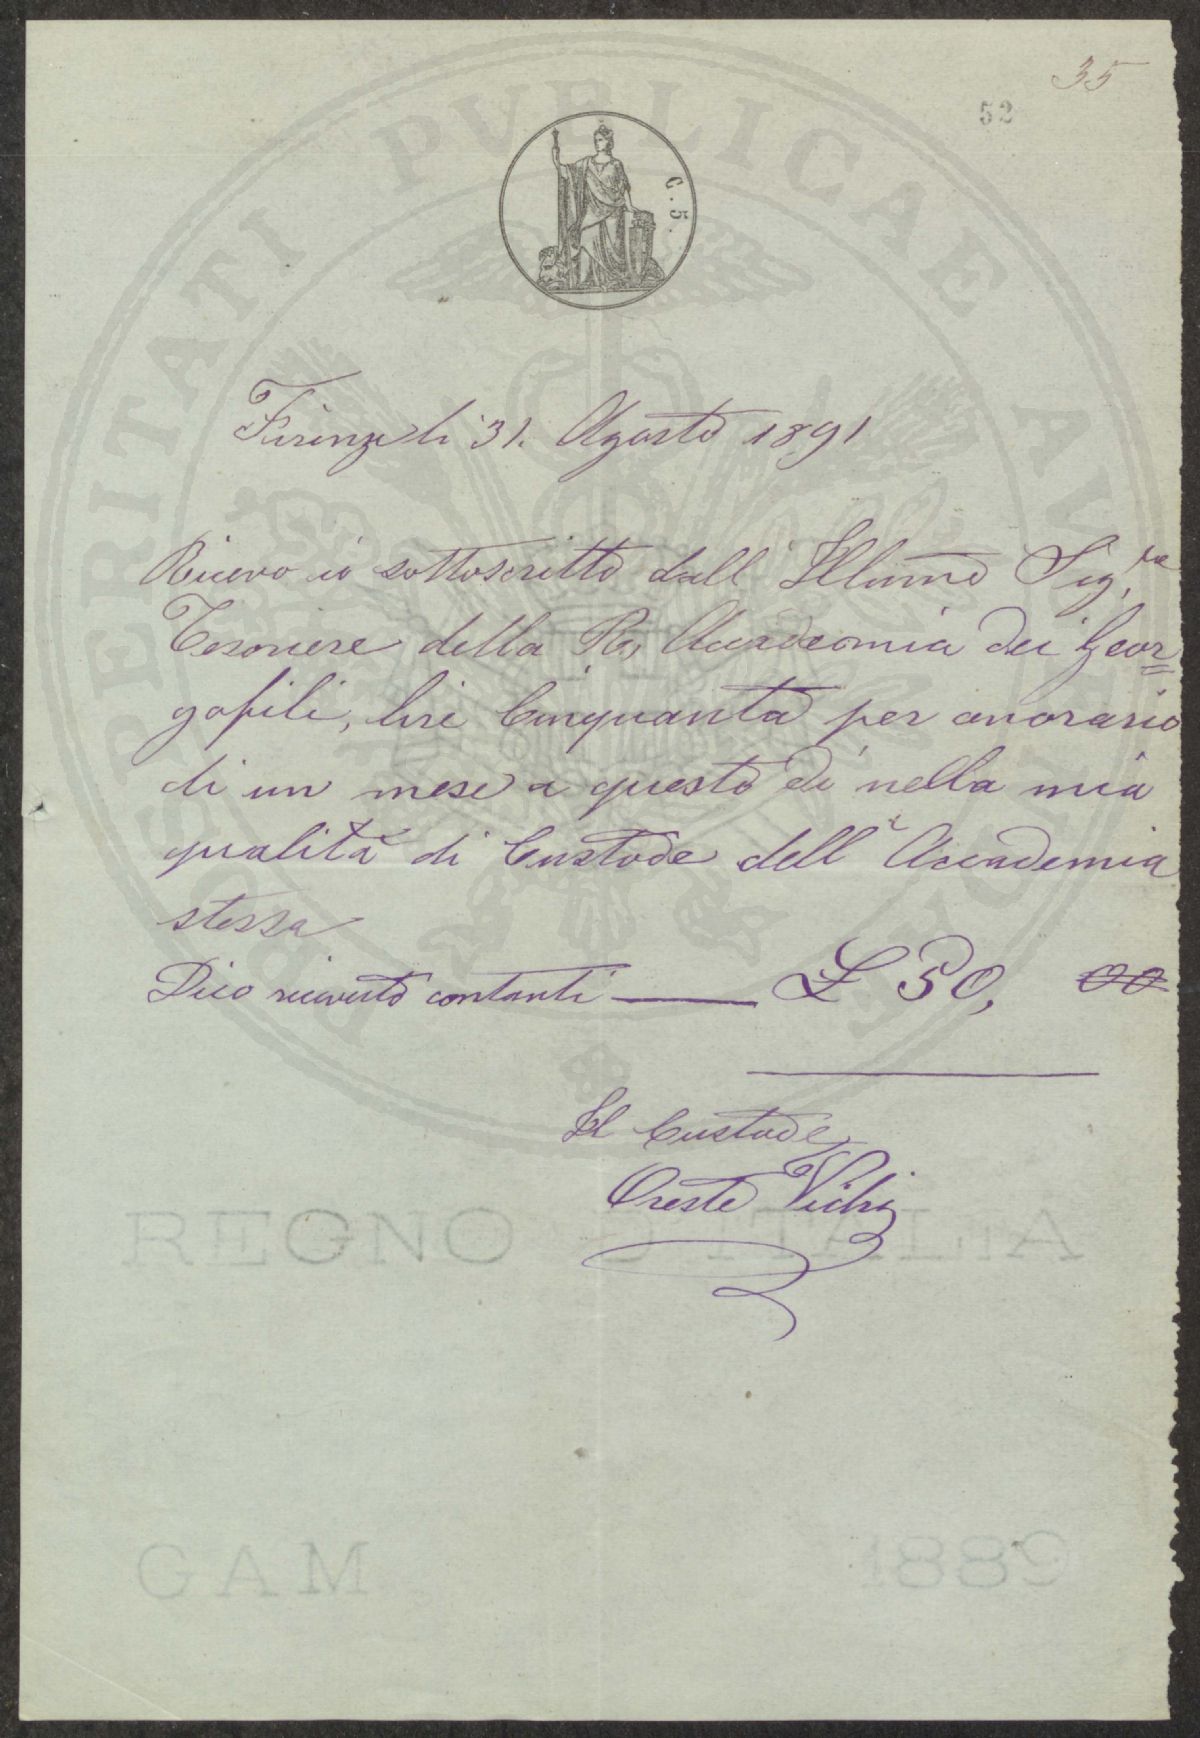 35
52
C. 5.
PROSPERITATI PUBLICAE AUGENDAE
Firenze li 31. Agosto 1891
Ricevo io sottoscritto dall' Illumo Sig.re
Tesoriere della Ra. Accademia dei Geor=
gofili, lire Cinquanta per onorario
di un mese a questo dì nella mia
qualità di Custode dell' Accademia
stessa
Dico ricevuto contanti — L 50, 00
Il Custode
Oreste Vichi
REGNO D'ITALIA
GAM 1889